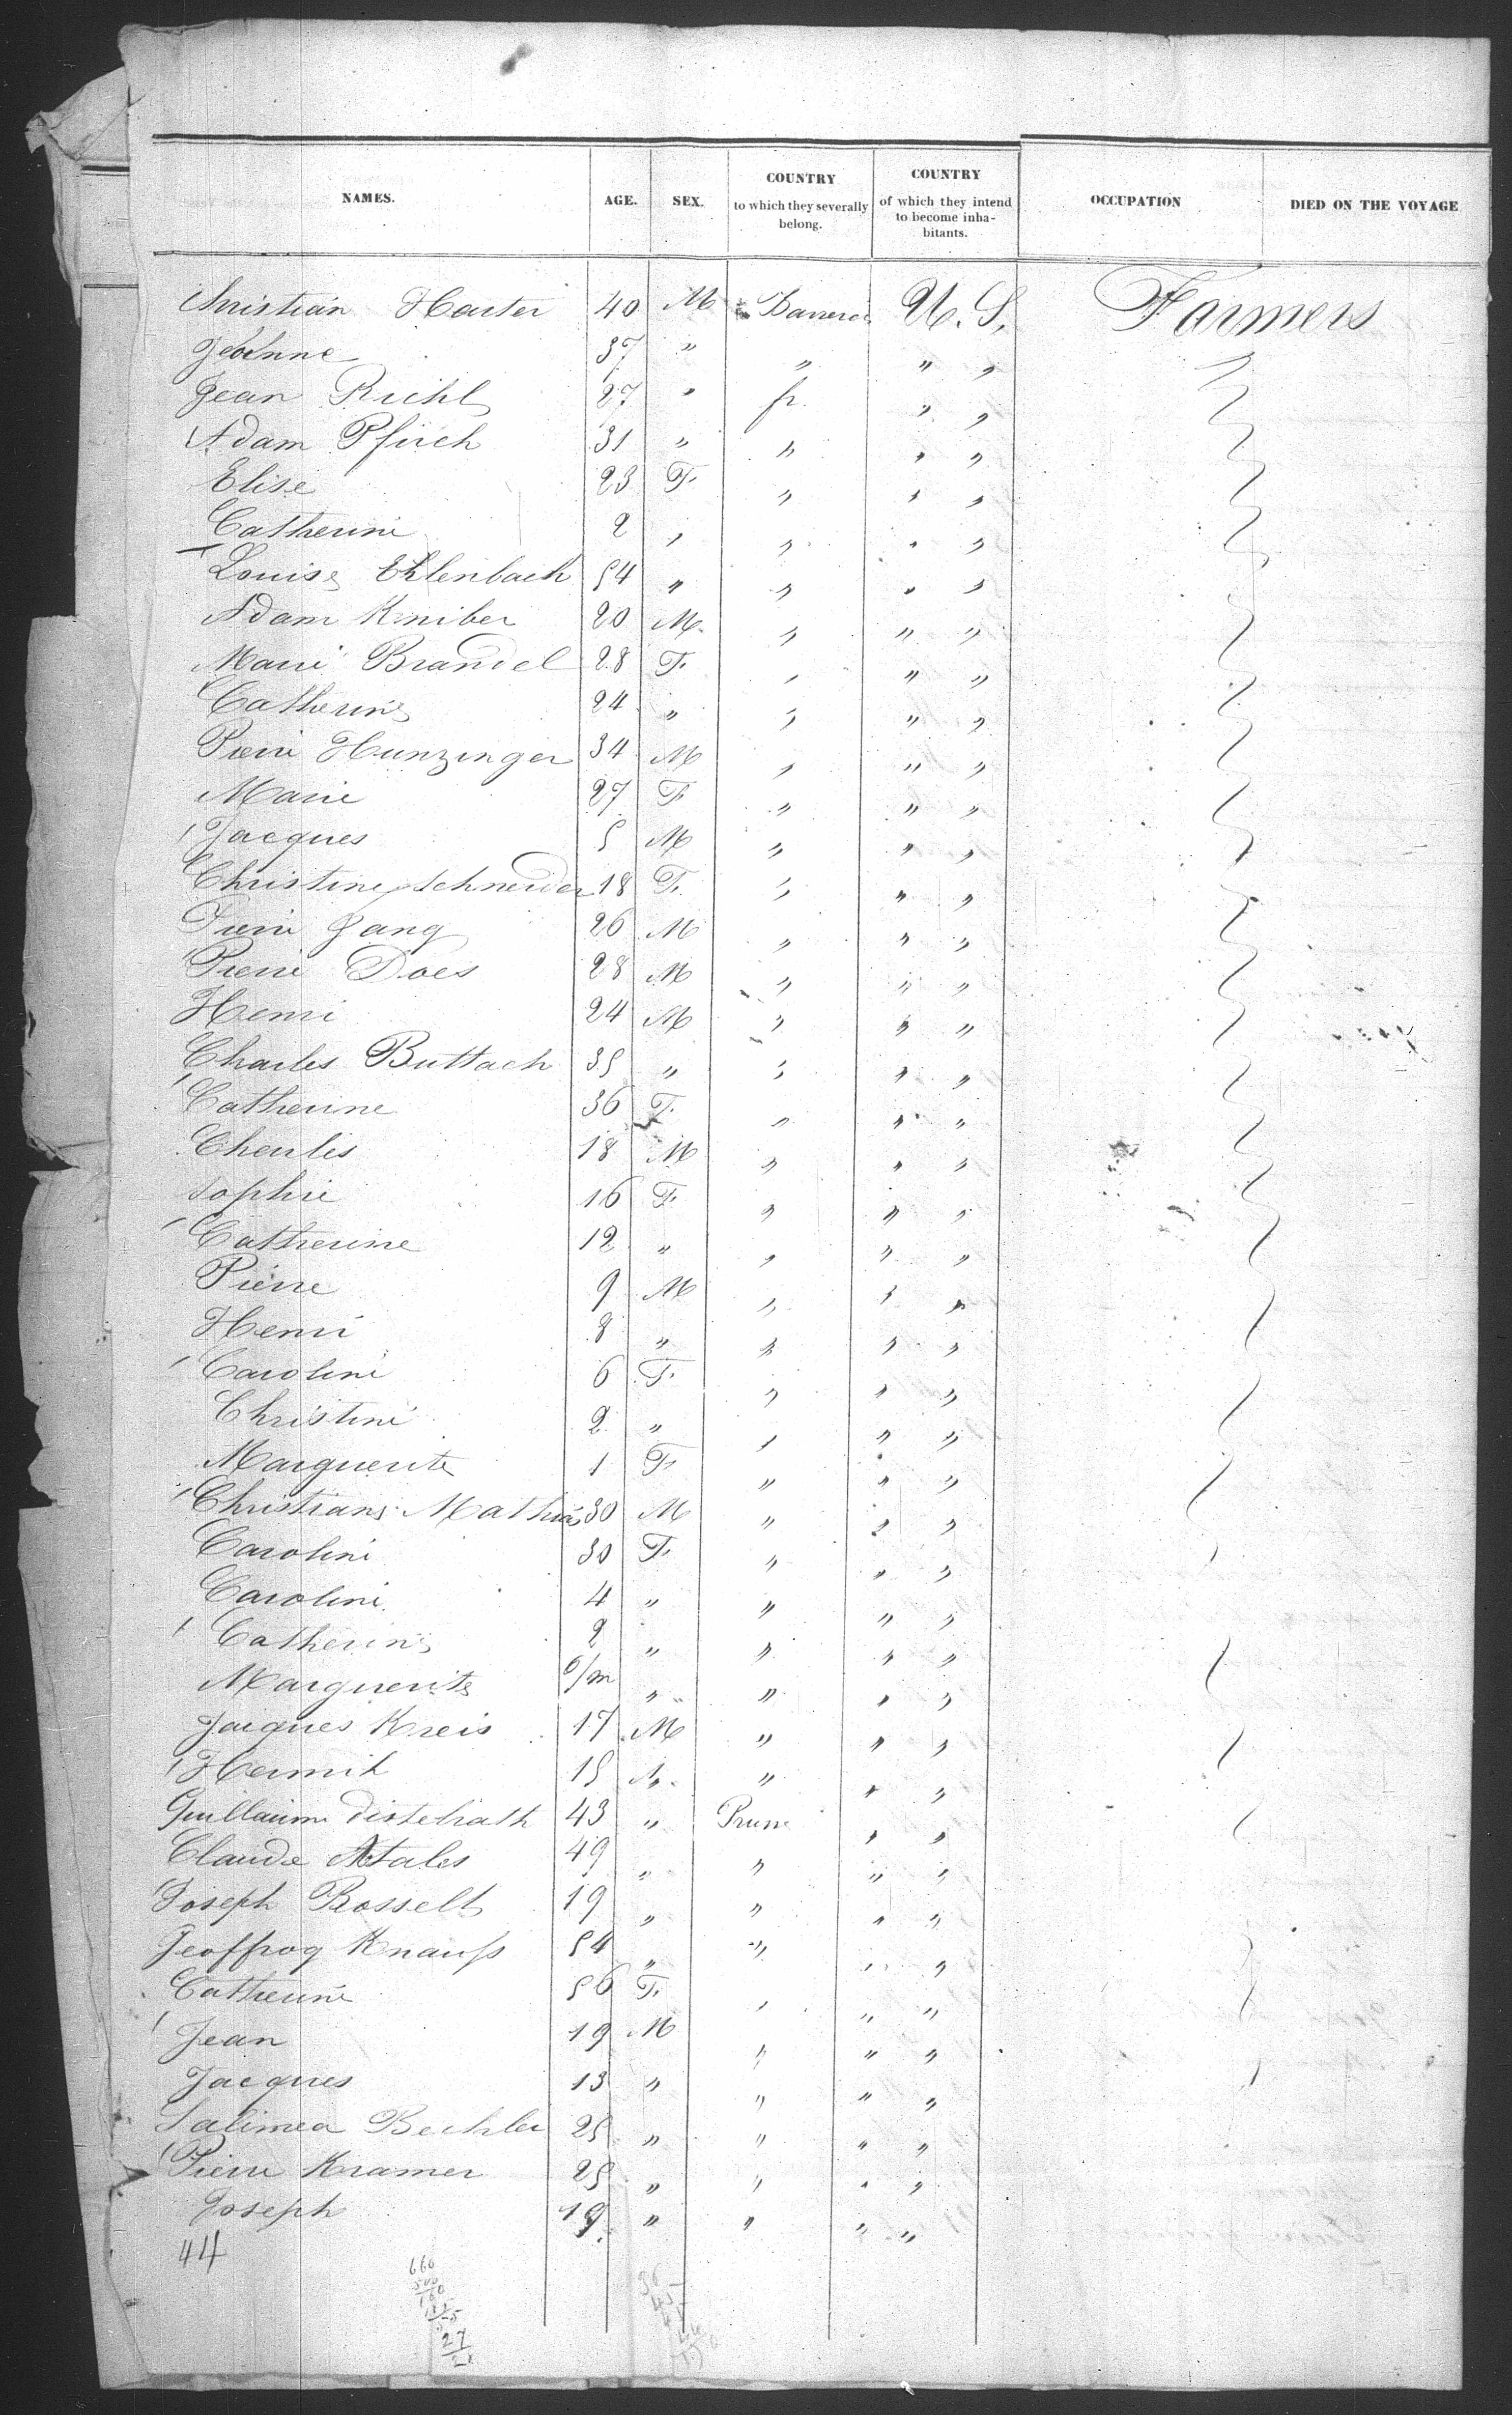 NAMES. AGE. SEX. COUNTRY to which they severally belong. COUNTRY of which they intend to become inhabitants. OCCUPATION DIED ON THE VOYAGE
Christian Harter 40 M U. S. Farmers
Jeanne 37 " " " "
Jean Richl 27 " fr. " "
Adam Pfirch 31 " " " "
Elise 23 F. " " "
Catherine 2 " " " "
Louise Ehlenbach 54 " " " "
Adam Kniber 20 M. " " "
Marie Brandel 28 F. " " "
Catherine 24 " " " "
Pierre Hunzinger 34 M " " "
Marie 27 F " " "
Jacques 5 M " " "
Christine Schneider 18 F. " " "
Pierre Gang 26 M " " "
Pierre Does 28 M " " "
Henri 24 M " " "
Charles Buttach 35 " " " "
Catherine 36 F. " " "
Charles 18 M " " "
Sophie 16 F. " " "
Catherine 12 " " " "
Pierre 9 M " " "
Henri 8 " " " "
Caroline 6 F. " " "
Christine 2 " " " "
Marguerite 1 F. " " "
Christian Mathias 30 M " " "
Caroline 30 F. " " "
Caroline 4 " " " "
Catherine 2 " " " "
Marguerite 6/m " " " "
Jacques Kreis 17 M " " "
15 " " "
Guillaume Distelrath 43 " Prusse " "
Claude 49 " " " "
Joseph Rosselt 19 " " " "
Geoffroy Knauss 54 " " " "
Catherine 56 F. " " "
Jean 19 M " " "
Jacques 13 " " " "
Salimea Bechler 25 " " " "
Pierre Kramer 25 " " " "
Joseph 19 " " " "
44
660
500
160
27